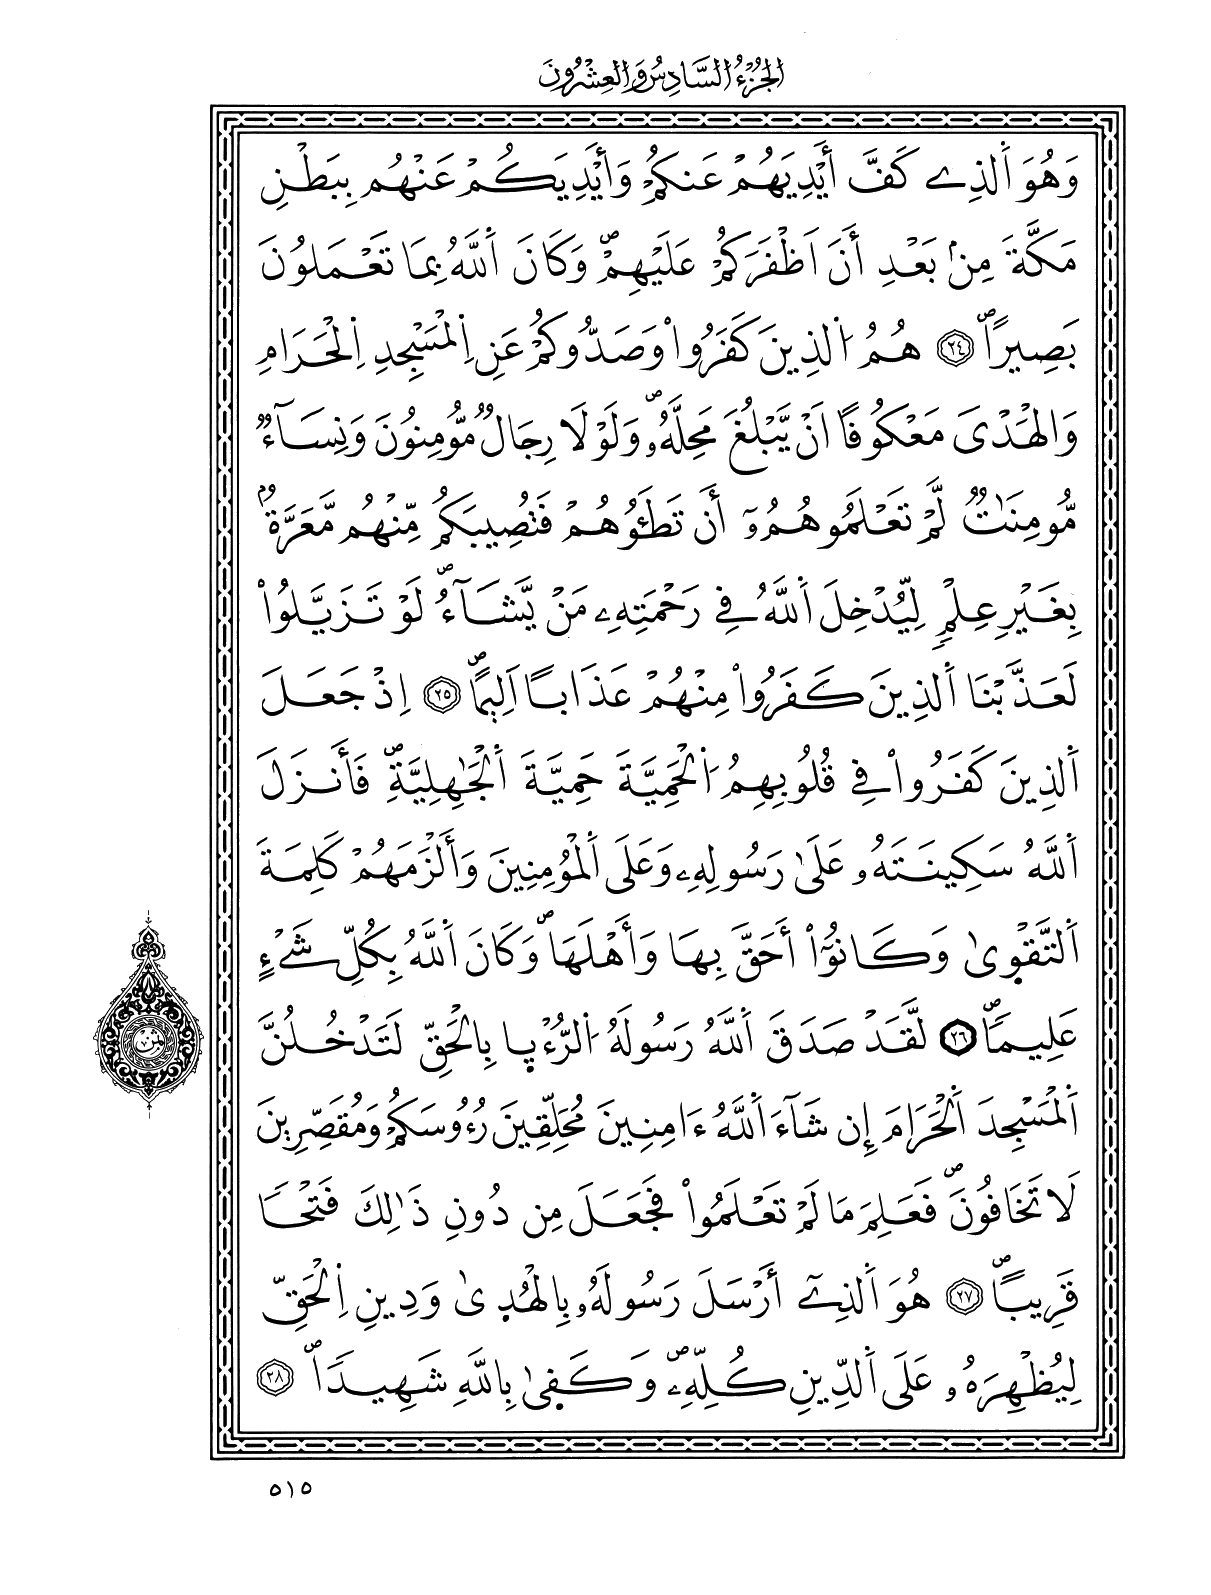 الجزء السادس والعشرون
وَهُوَ اَ۬لذِے كَفَّ أَيْدِيَهُمْ عَنكُمْ وَأَيْدِيَكُمْ عَنْهُم بِبَطْنِ
مَكَّةَ مِنۢ بَعْدِ أَنَ اَظْفَرَكُمْ عَلَيْهِمْۖ وَكَانَ اَ۬للَّهُ بِمَا تَعْمَلُونَ
بَصِيراًۖ ۝٢٤ هُمُ اُ۬لذِينَ كَفَرُواْ وَصَدُّوكُمْ عَنِ اِ۬لْمَسْجِدِ اِ۬لْحَرَامِ
وَالْهَدْيَ مَعْكُوفاً اَنْ يَّبْلُغَ مَحِلَّهُۥۖ وَلَوْلَا رِجَالٌ مُّؤْمِنُونَ وَنِسَآءٌ
مُّؤْمِنَٰتٌ لَّمْ تَعْلَمُوهُمُۥٓ أَن تَطَـُٔوهُمْ فَتُصِيبَكُم مِّنْهُم مَّعَرَّةُۢ
بِغَيْرِ عِلْمٍ لِّيُدْخِلَ اَ۬للَّهُ فِے رَحْمَتِهِۦ مَنْ يَّشَآءُۖ لَوْ تَزَيَّلُواْ
لَعَذَّبْنَا اَ۬لذِينَ كَفَرُواْ مِنْهُمْ عَذَاباً اَلِيماًۖ ۝٢٥ اِذْ جَعَلَ
اَ۬لذِينَ كَفَرُواْ فِے قُلُوبِهِمُ اُ۬لْحَمِيَّةَ حَمِيَّةَ اَ۬لْجَٰهِلِيَّةِۖ فَأَنزَلَ
اَ۬للَّهُ سَكِينَتَهُۥ عَلَىٰ رَسُولِهِۦ وَعَلَى اَ۬لْمُؤْمِنِينَ وَأَلْزَمَهُمْ كَلِمَةَ
اَ۬لتَّقْوٜىٰ وَكَانُوٓاْ أَحَقَّ بِهَا وَأَهْلَهَاۖ وَكَانَ اَ۬للَّهُ بِكُلِّ شَےْءٍ
عَلِيماًۖ ۝٢٦ لَّقَدْ صَدَقَ اَ۬للَّهُ رَسُولَهُ اُ۬لرُّءْيٜا بِالْحَقِّ لَتَدْخُلُنَّ
اَ۬لْمَسْجِدَ اَ۬لْحَرَامَ إِن شَآءَ اَ۬للَّهُ ءَامِنِينَ مُحَلِّقِينَ رُءُوسَكُمْ وَمُقَصِّرِينَ
لَا تَخَافُونَۖ فَعَلِمَ مَا لَمْ تَعْلَمُواْ فَجَعَلَ مِن دُونِ ذَٰلِكَ فَتْحاً
قَرِيباًۖ ۝٢٧ هُوَ اَ۬لذِےٓ أَرْسَلَ رَسُولَهُۥ بِالْهُدٜىٰ وَدِينِ اِ۬لْحَقِّ
لِيُظْهِرَهُۥ عَلَى اَ۬لدِّينِ كُلِّهِۦۖ وَكَفٜىٰ بِاللَّهِ شَهِيداًۖ ۝٢٨
ثمن
٥١٥